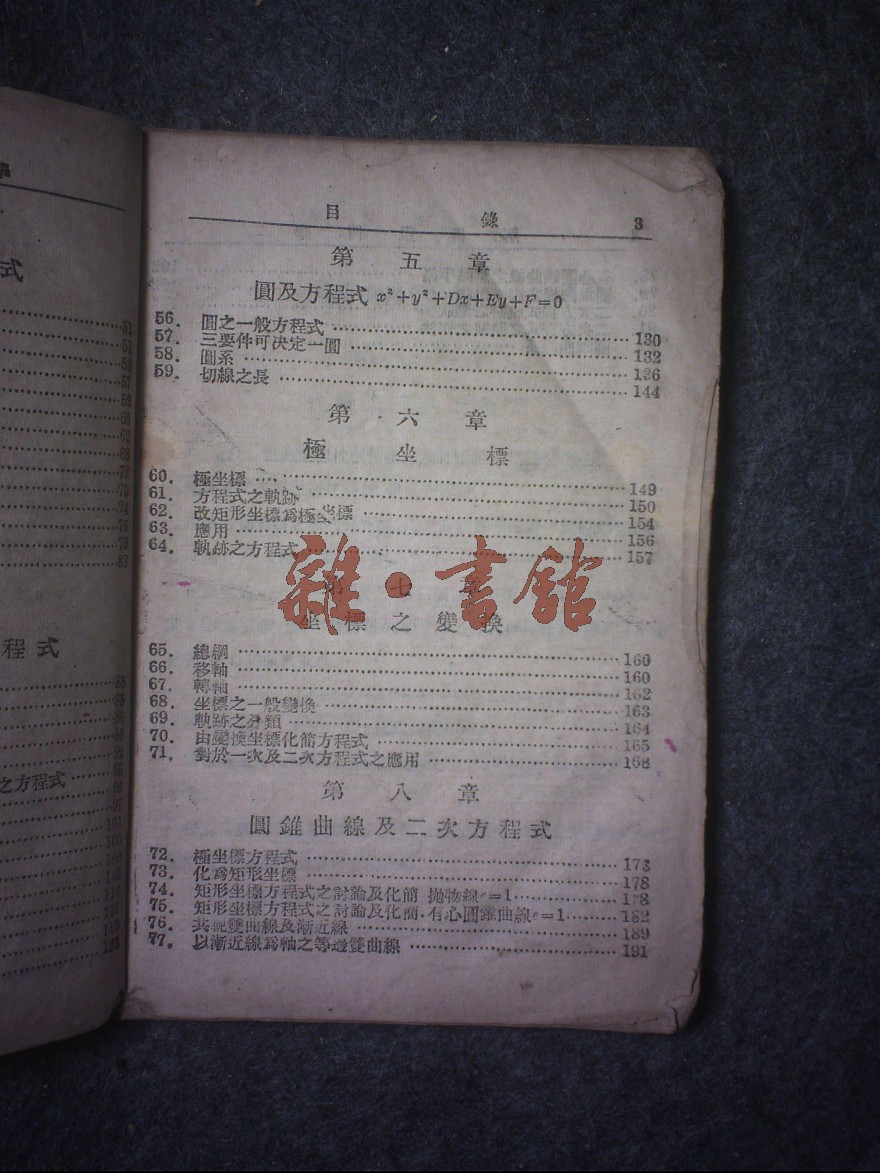 目錄 3
第五章
圓及方程式 x²+y²+Dx+Ey+F=0
56. 圓之一般方程式 130
57. 三要件可決定一圓 132
58. 圓系 136
59. 切線之長 144
第六章
極坐標
60. 極坐標 149
61. 方程式之軌跡 150
62. 改矩形坐標爲極坐標 154
63. 應用 156
64. 軌跡之方程式 157
第七章
坐標之變換
65. 總綱 160
66. 移軸 160
67. 轉軸 162
68. 坐標之一般變換 163
69. 軌跡之分類 164
70. 由變換坐標化簡方程式 165
71. 對於一次及二次方程式之應用 168
第八章
圓錐曲線及二次方程式
72. 極坐標方程式 173
73. 化爲矩形坐標 178
74. 矩形坐標方程式之討論及化簡 拋物線e=1 178
75. 矩形坐標方程式之討論及化簡.有心圓錐曲線e=1 182
76. 共軛雙曲線及漸近線 189
77. 以漸近線爲軸之等邊雙曲線 191
雜·書館
式
51
57
59
60
62
68
72
73
74
76
79
83
程式
85
之方程式